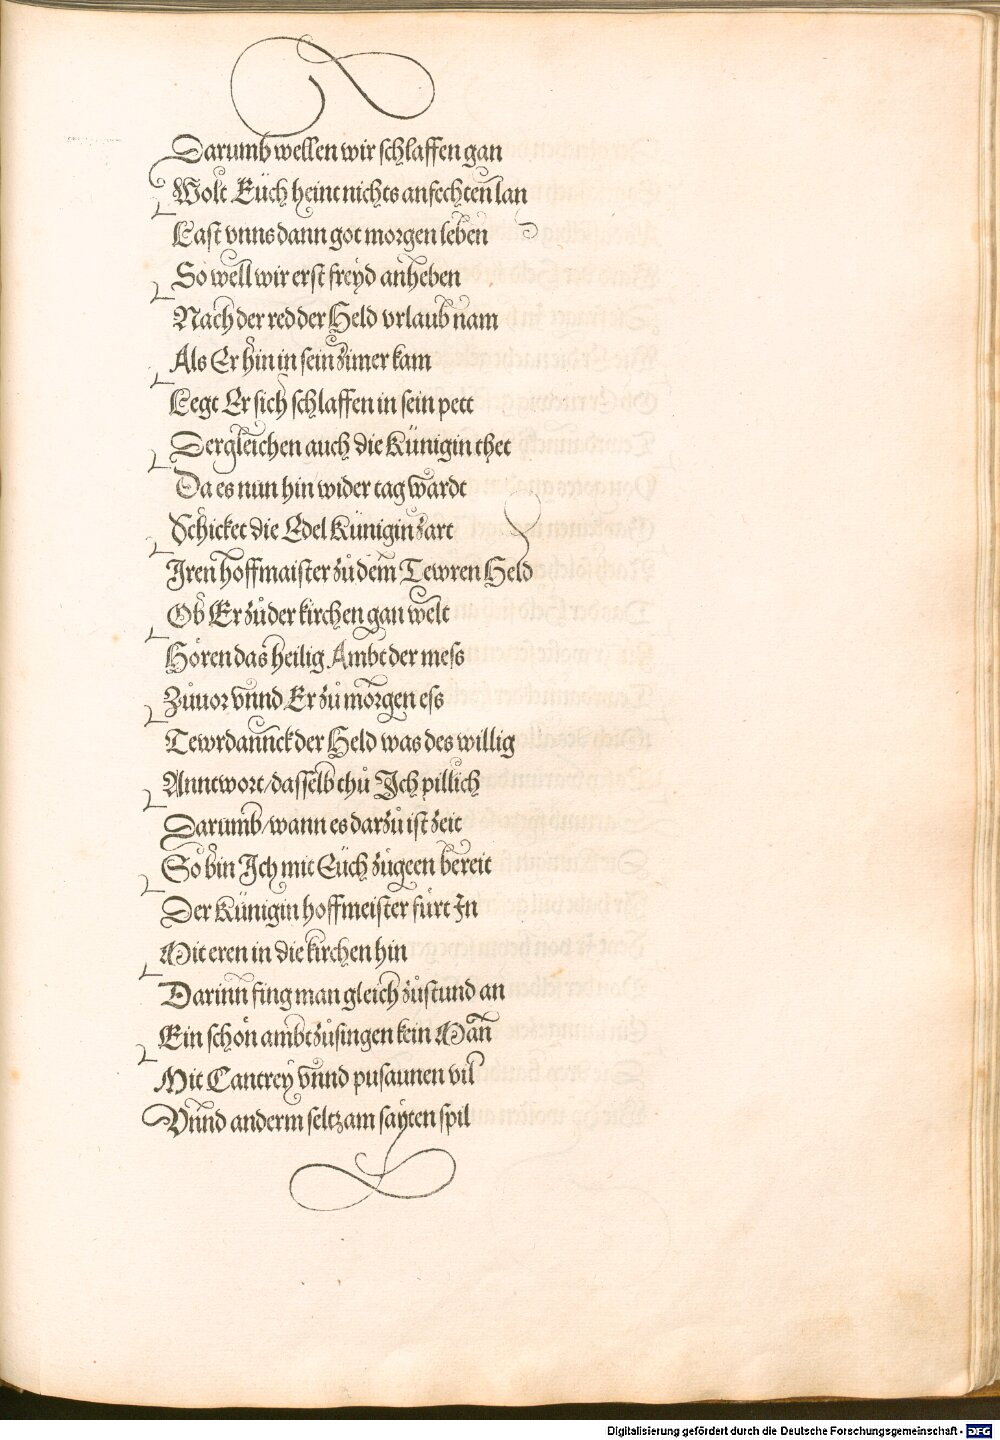 Darumb wellen wir schlaffen gan
Wolt Eüch heint nichts anfechten lan
Last vnns dann got morgen leben
So well wir erst freyd anheben
Nach der red der Held vrlaub nam
Als Er hin in sein zimer kam
Legt Er sich schlaffen in sein pett
Dergleichen auch die Künigin thet
Da es nun hin wider tag wardt
Schicket die Edel Künigin zart
Iren hoffmaister zů dem Tewren Held
Ob Er zů der kirchen gan welt
Hören das heilig Ambt der mess
Zůuor vnnd Er zů morgen ess
Tewrdannck der Held was des willig
Anntwort / dasselb thů Ich pillich
Darumb / wann es darzů ist zeit
So bin Ich mit Eüch zůgeen bereit
Der Künigin hoffmeister fürt In
Mit eren in die kirchen hin
Darinn fing man gleich zůstund an
Ein schön ambt zůsingen kein Man
Mit Cantrey vnnd pusaunen vil
Vnnd anderm seltzam sayten spil
Digitalisierung gefördert durch die Deutsche Forschungsgemeinschaft - DFG